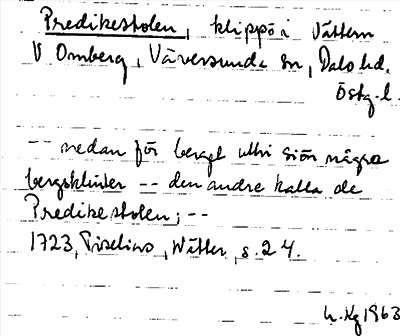 Predikestolen, klippö i Vättern
V Omberg, Väversunda sn, Dals hd.
Östg.l.
-- nedan för bergel uthi siön några
bergsklinter -- den andre kalla de
Predikestolen; --
1723, Tiselius, Wätter, s. 24.
1963